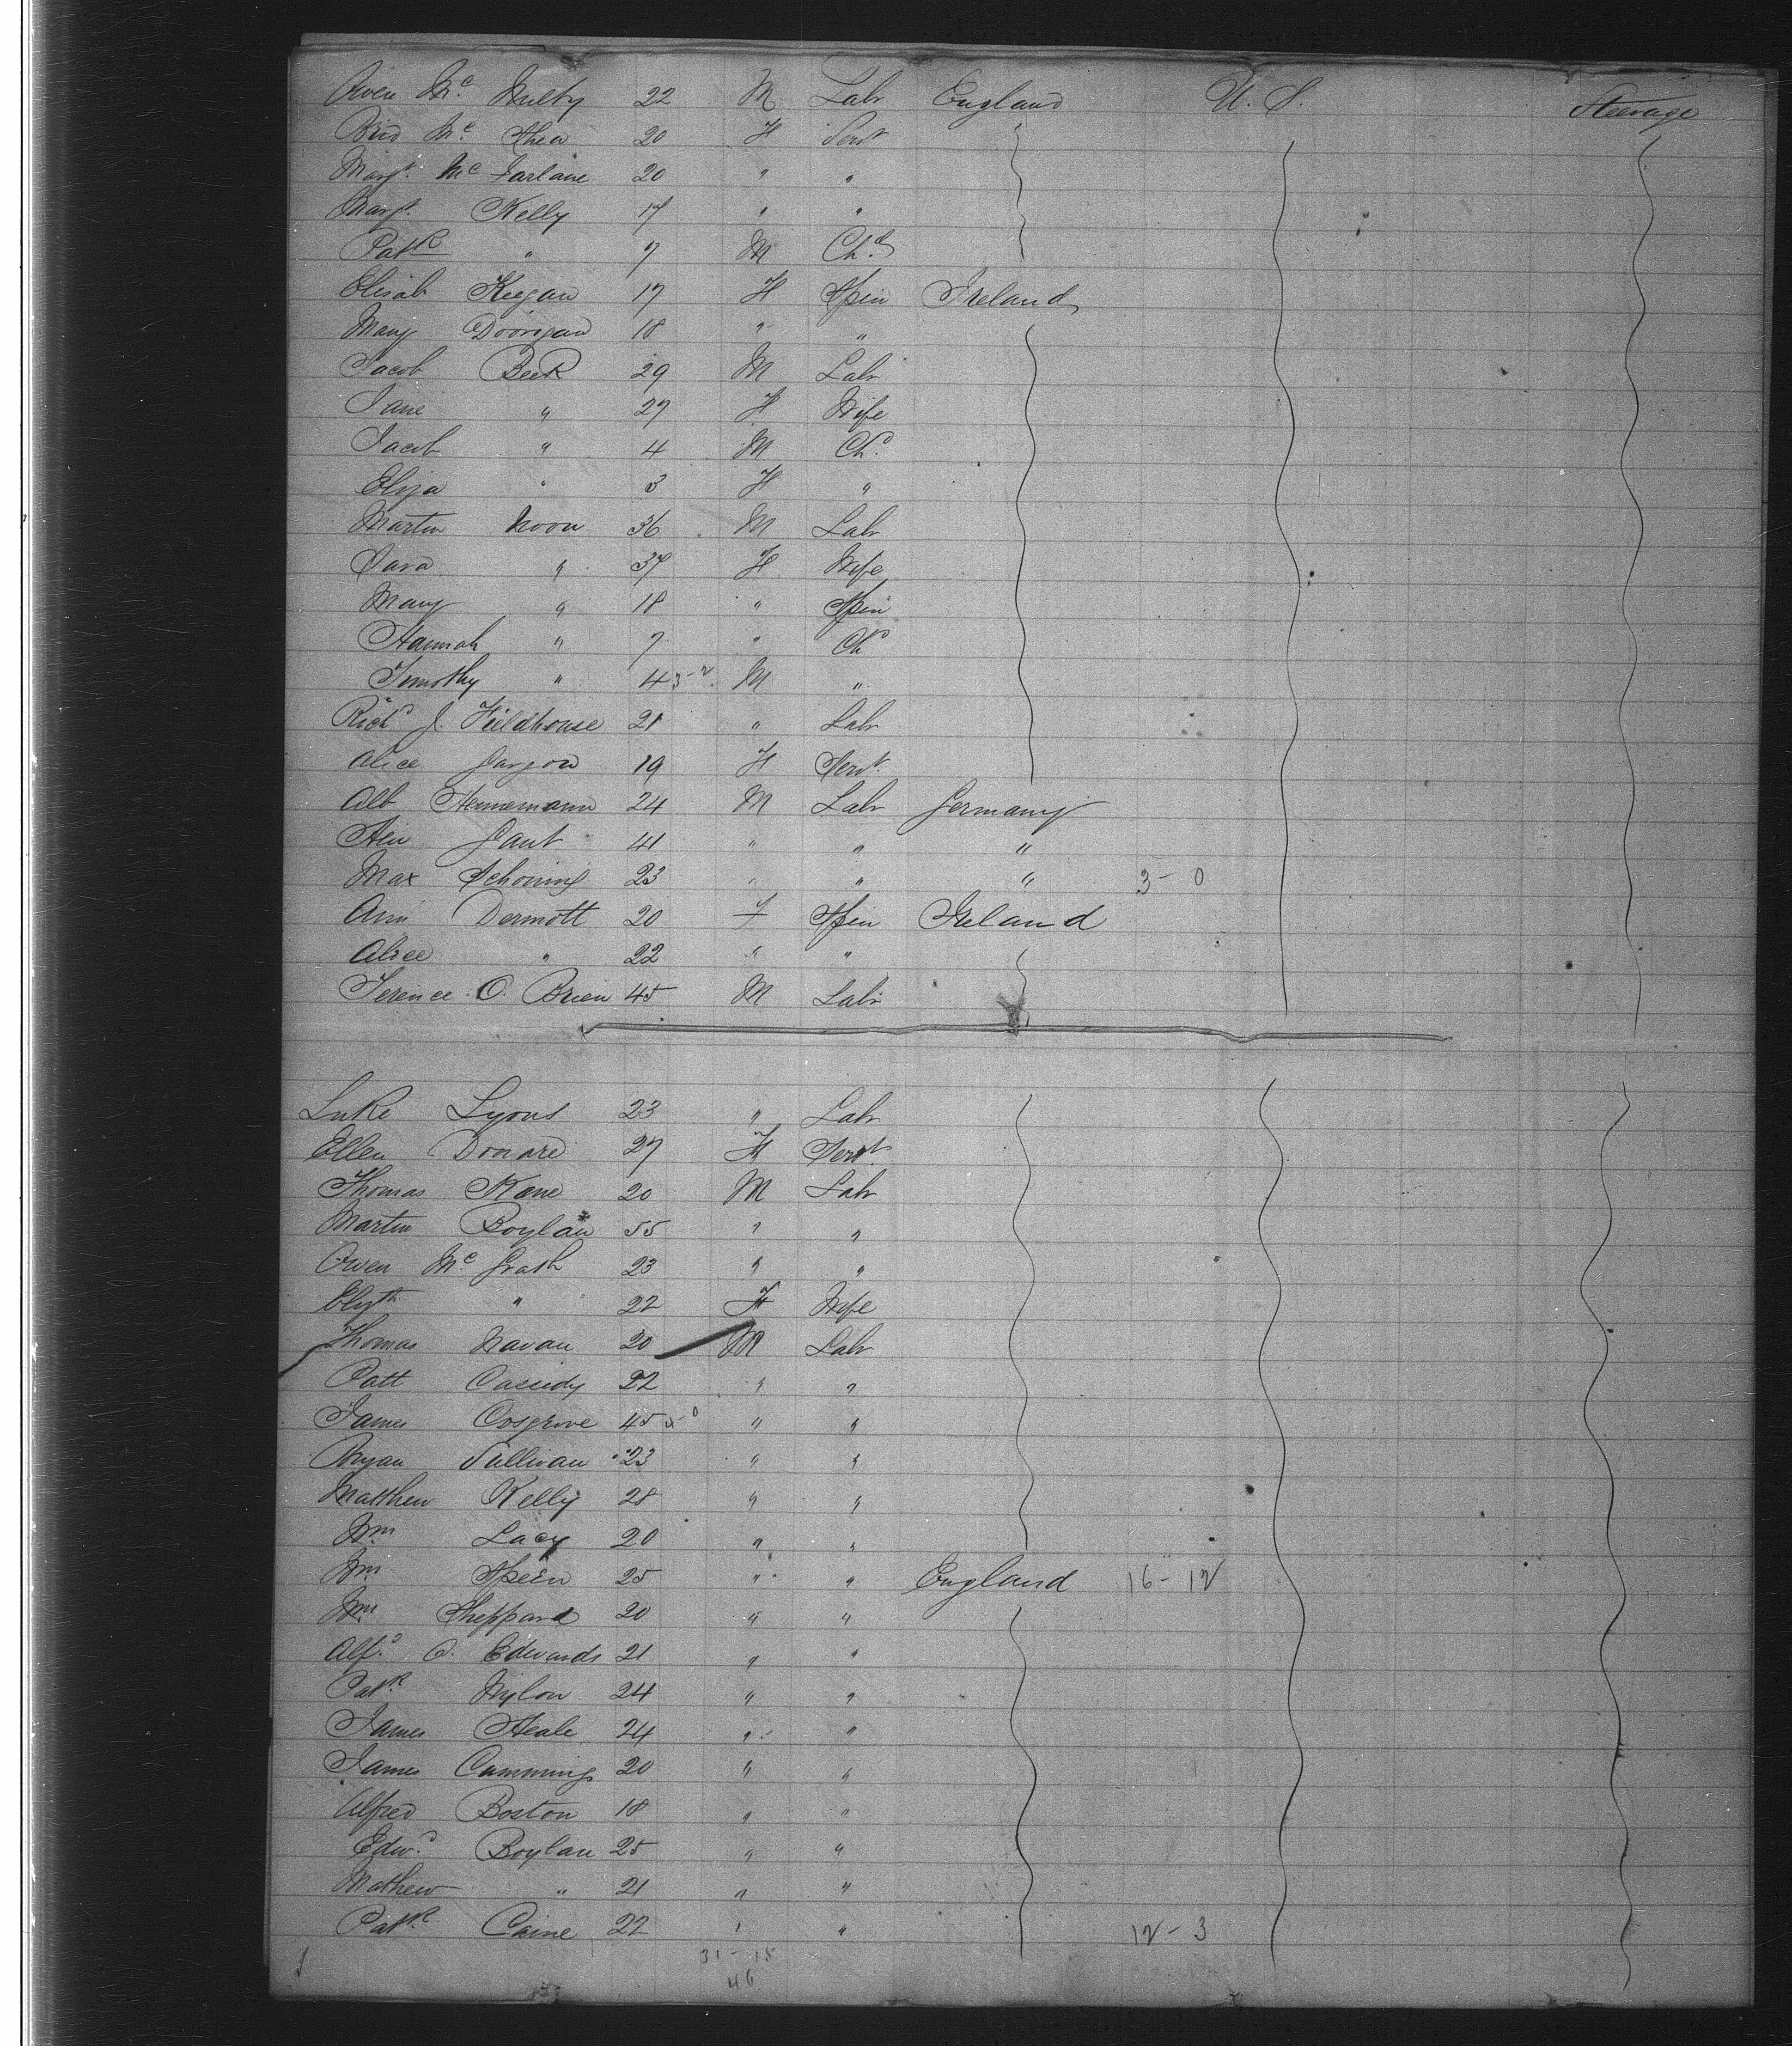 Owen Mc Nulty 22 M Labr England U. S. Steerage
Brid Mc Shea 20 F Servt
Margt. Mc Farlane 20 " "
Margt. Kelly 17 " "
Patk " 7 M Chd
Elisab Keegan 17 F Spin Ireland
Mary Doorigan 18 " "
Jacob Beck 29 M Labr
Jane " 27 F Wife
Jacob " 4 M Chd
Eliza " 3 F "
Martin Noon 36 M Labr
Sara " 37 F Wife
Mary " 18 " Spin
Hannah " 7 " Chd
Timothy " 4 3-2 M "
Richd J. Fieldhouse 21 " Labr
Alice 19 F Servt.
Alb Hennemann 24 M Labr Germany
Hein Gant 41 " " "
Max Schoning 23 " " " 3-0
Ann Dermott 20 F Spin Ireland
Alice " 22 " "
Terence O. Brien 45 M Labr
Luke Lyons 23 " Labr
Ellen 27 F Servt.
Thomas Kane 20 M Labr
Martin Boylan 55 " "
Owen Mc Grath 23 " "
Elizth " 22 F Wife
Thomas Navan 20 M Labr
Patt Cassidy 22 " "
James Cosgrove 45 " "
Bryan Sullivan 23 " "
Matthew Kelly 28 " "
Wm. Lacy 20 " "
Wm. Speen 25 " " England 16-12
Wm. Sheppard 20 " "
Alfd. O. Edwards 21 " "
Patk. Nylon 24 " "
James Heale 24 " "
James Cummings 20 " "
Alfred Boston 18 " "
Edwd. Boylan 25 " "
Mathew " 21 " "
Patk. Caine 22 " " 12-3
31-15
46